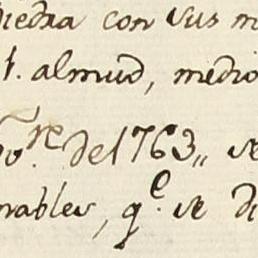 piedra con sus m
1. almud, medio
bv.re de 1763,, se
rables, q.e se di